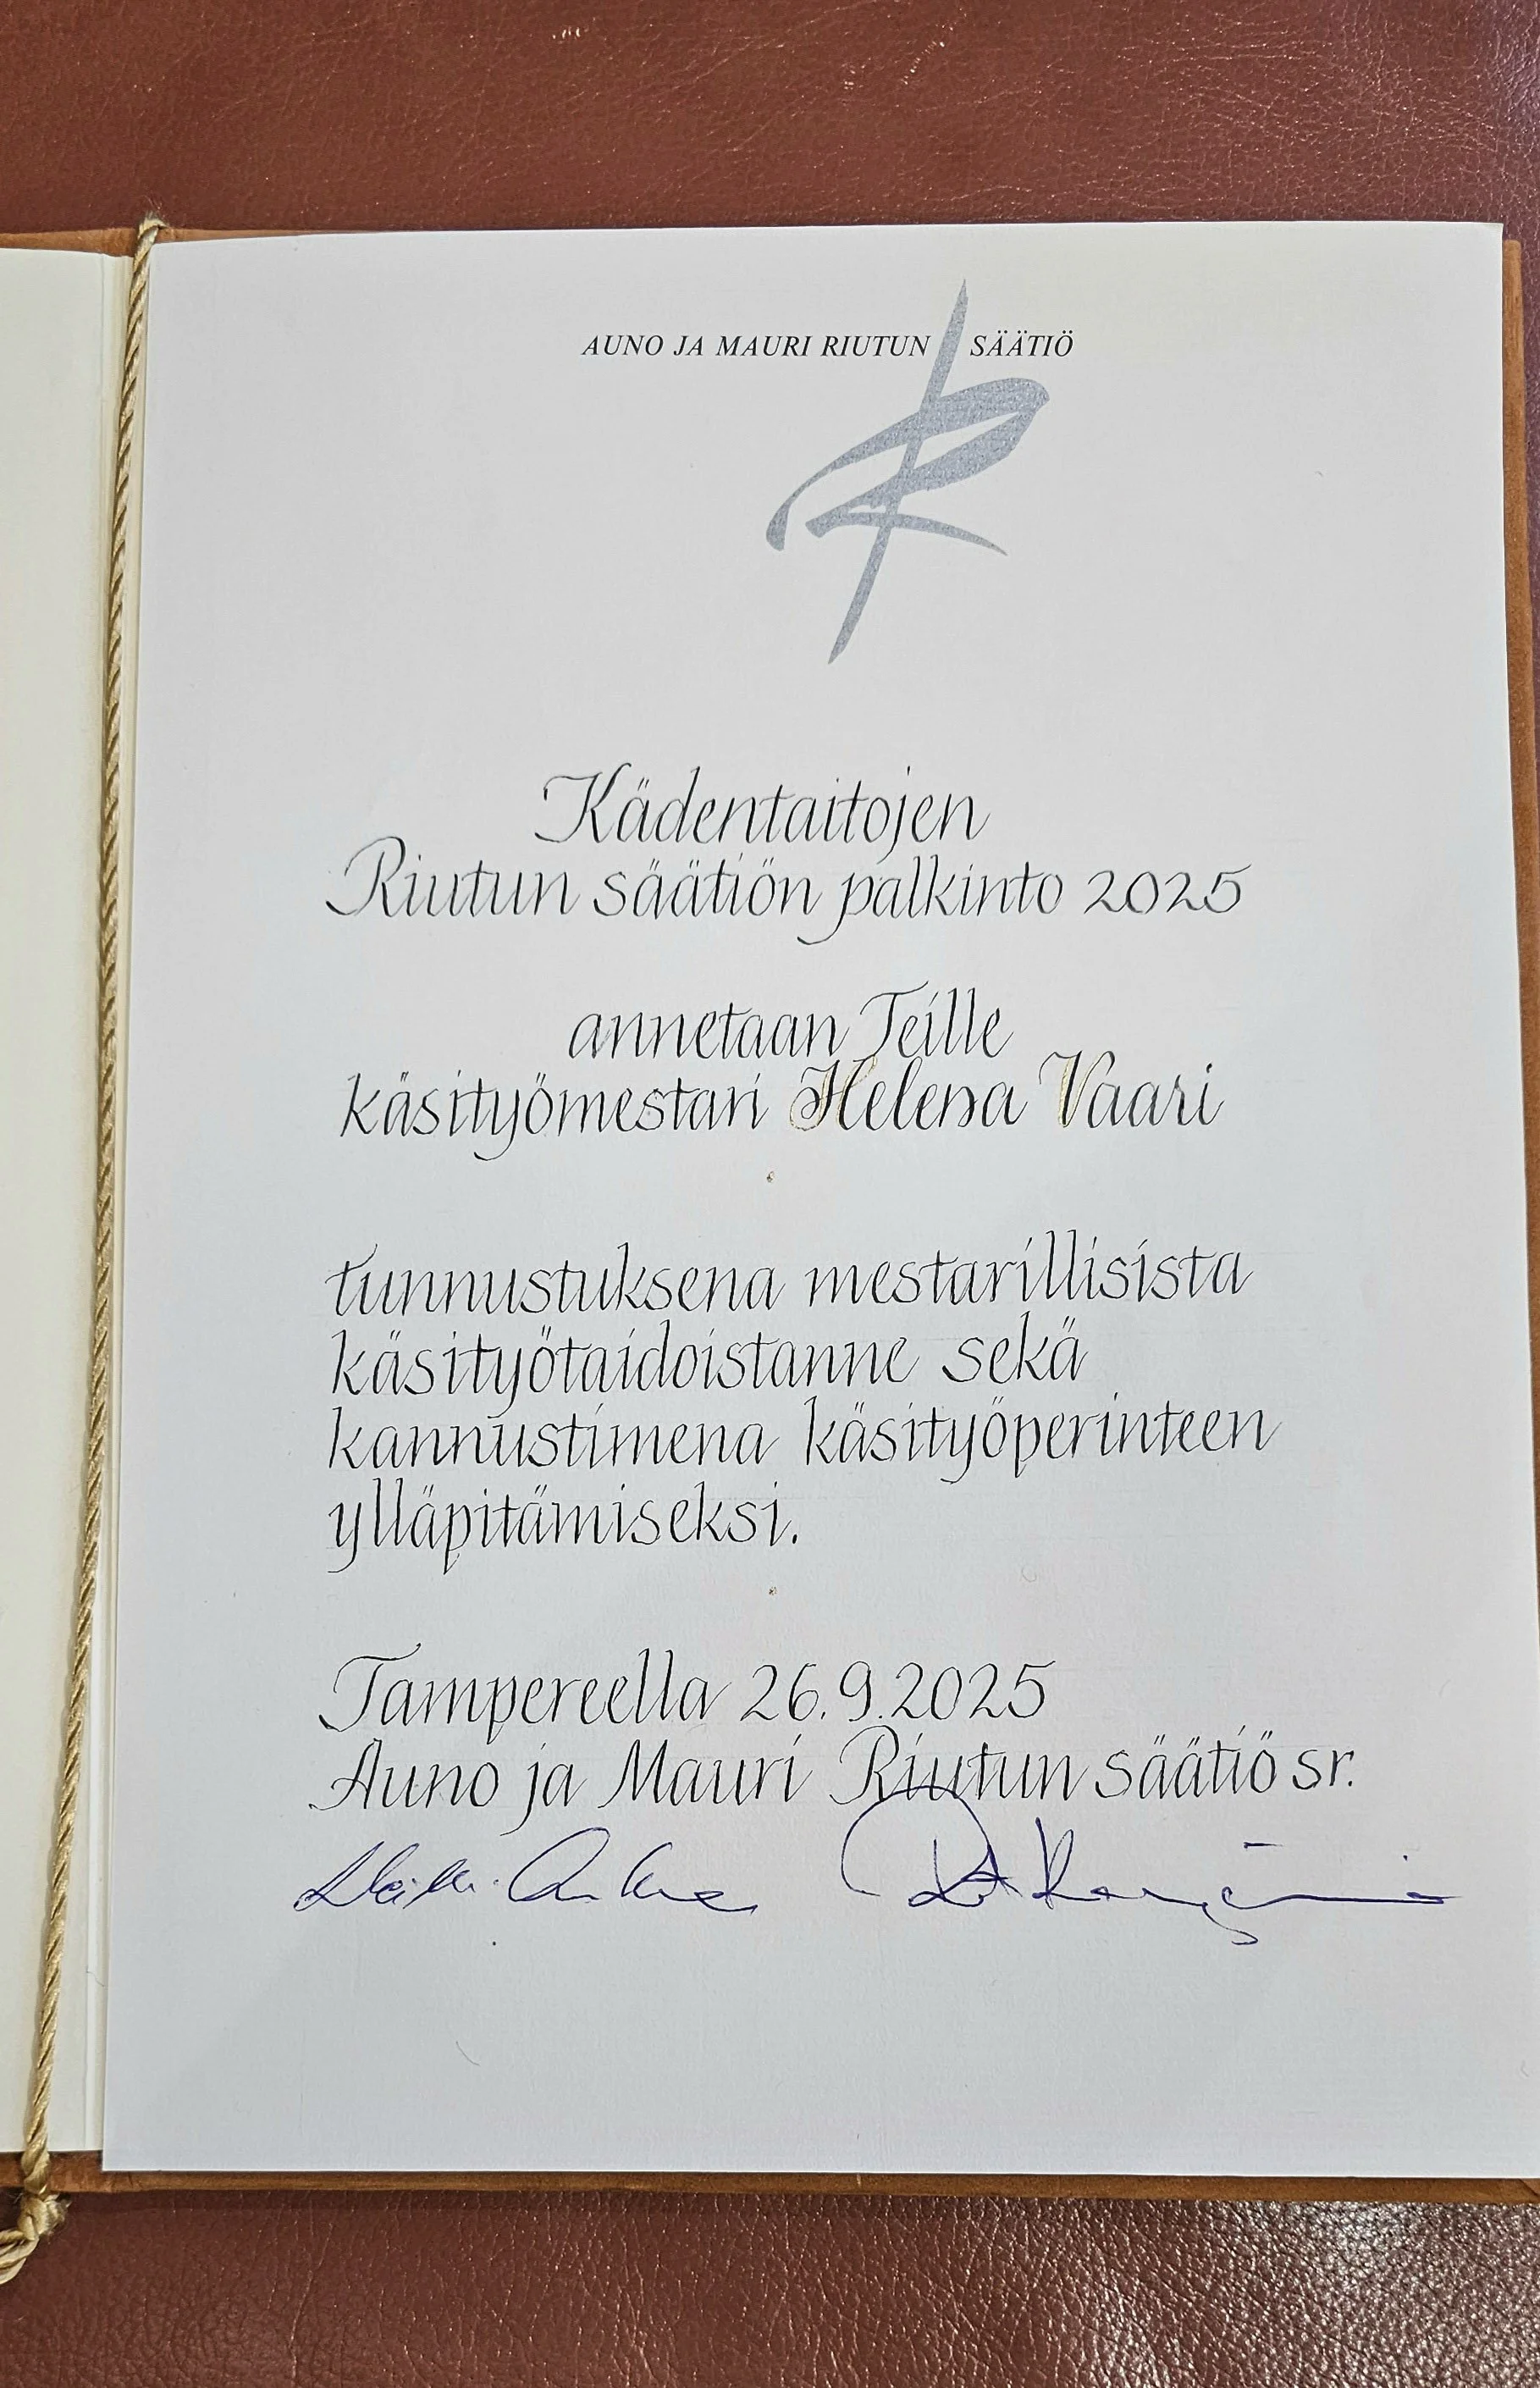 AUNO JA MAURI RIUTUN SÄÄTIÖ
Kädentaitojen
Riutun säätiön palkinto 2025
annetaan Teille
käsityömestari Helena Vaari
tunnustuksena mestarillisista
käsityötaidoistanne sekä
kannustimena käsityöperinteen
ylläpitämiseksi.
Tampereella 26.9.2025
Auno ja Mauri Riutun säätiö sr.